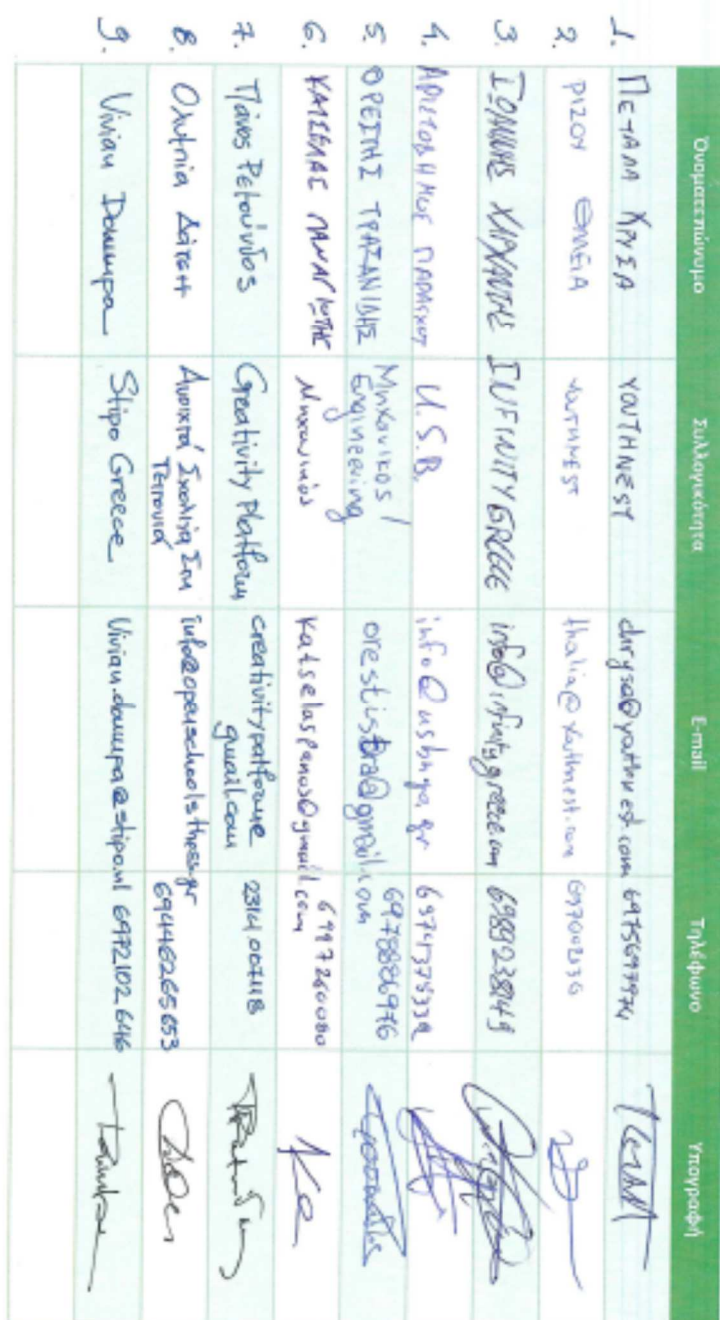 Ονοματεπώνυμο Συλλογικότητα E-mail Τηλέφωνο Υπογραφή
1. ΠΕΤΑΛΑ ΧΡΥΣΑ YOUTHNEST chrysa@youthnest.com 6975697974
2. ΡΙΖΟΥ ΘΑΛΕΙΑ YOUTHNEST thalia@youthnest.com
3. ΙΩΑΝΝΗΣ INFINITY GREECE info@infinitygreece.com 6989238149
4. ΑΡΙΣΤΟΔΗΜΟΣ U.S.B.
5. ΟΡΕΣΤΗΣ ΤΡΑΖΑΝΙΔΗΣ Μηχανικος / Engineering 6978886976
6. ΚΑΤΣΕΛΑΣ ΠΑΝΑΓΙΩΤΗΣ Μηχανικός katselaspanos@gmail.com 6997260080
7. Πάνος Creativity Platform creativityplatforme gmail.com 2314 007118
8. Ολυμπία Δάτση Ανοιχτά Σχολεία Στη Γειτονιά info@openschoolsthess.gr
9. Vivian Doumpa Stipo Greece Vivian.doumpa@stipo.nl 6972102646